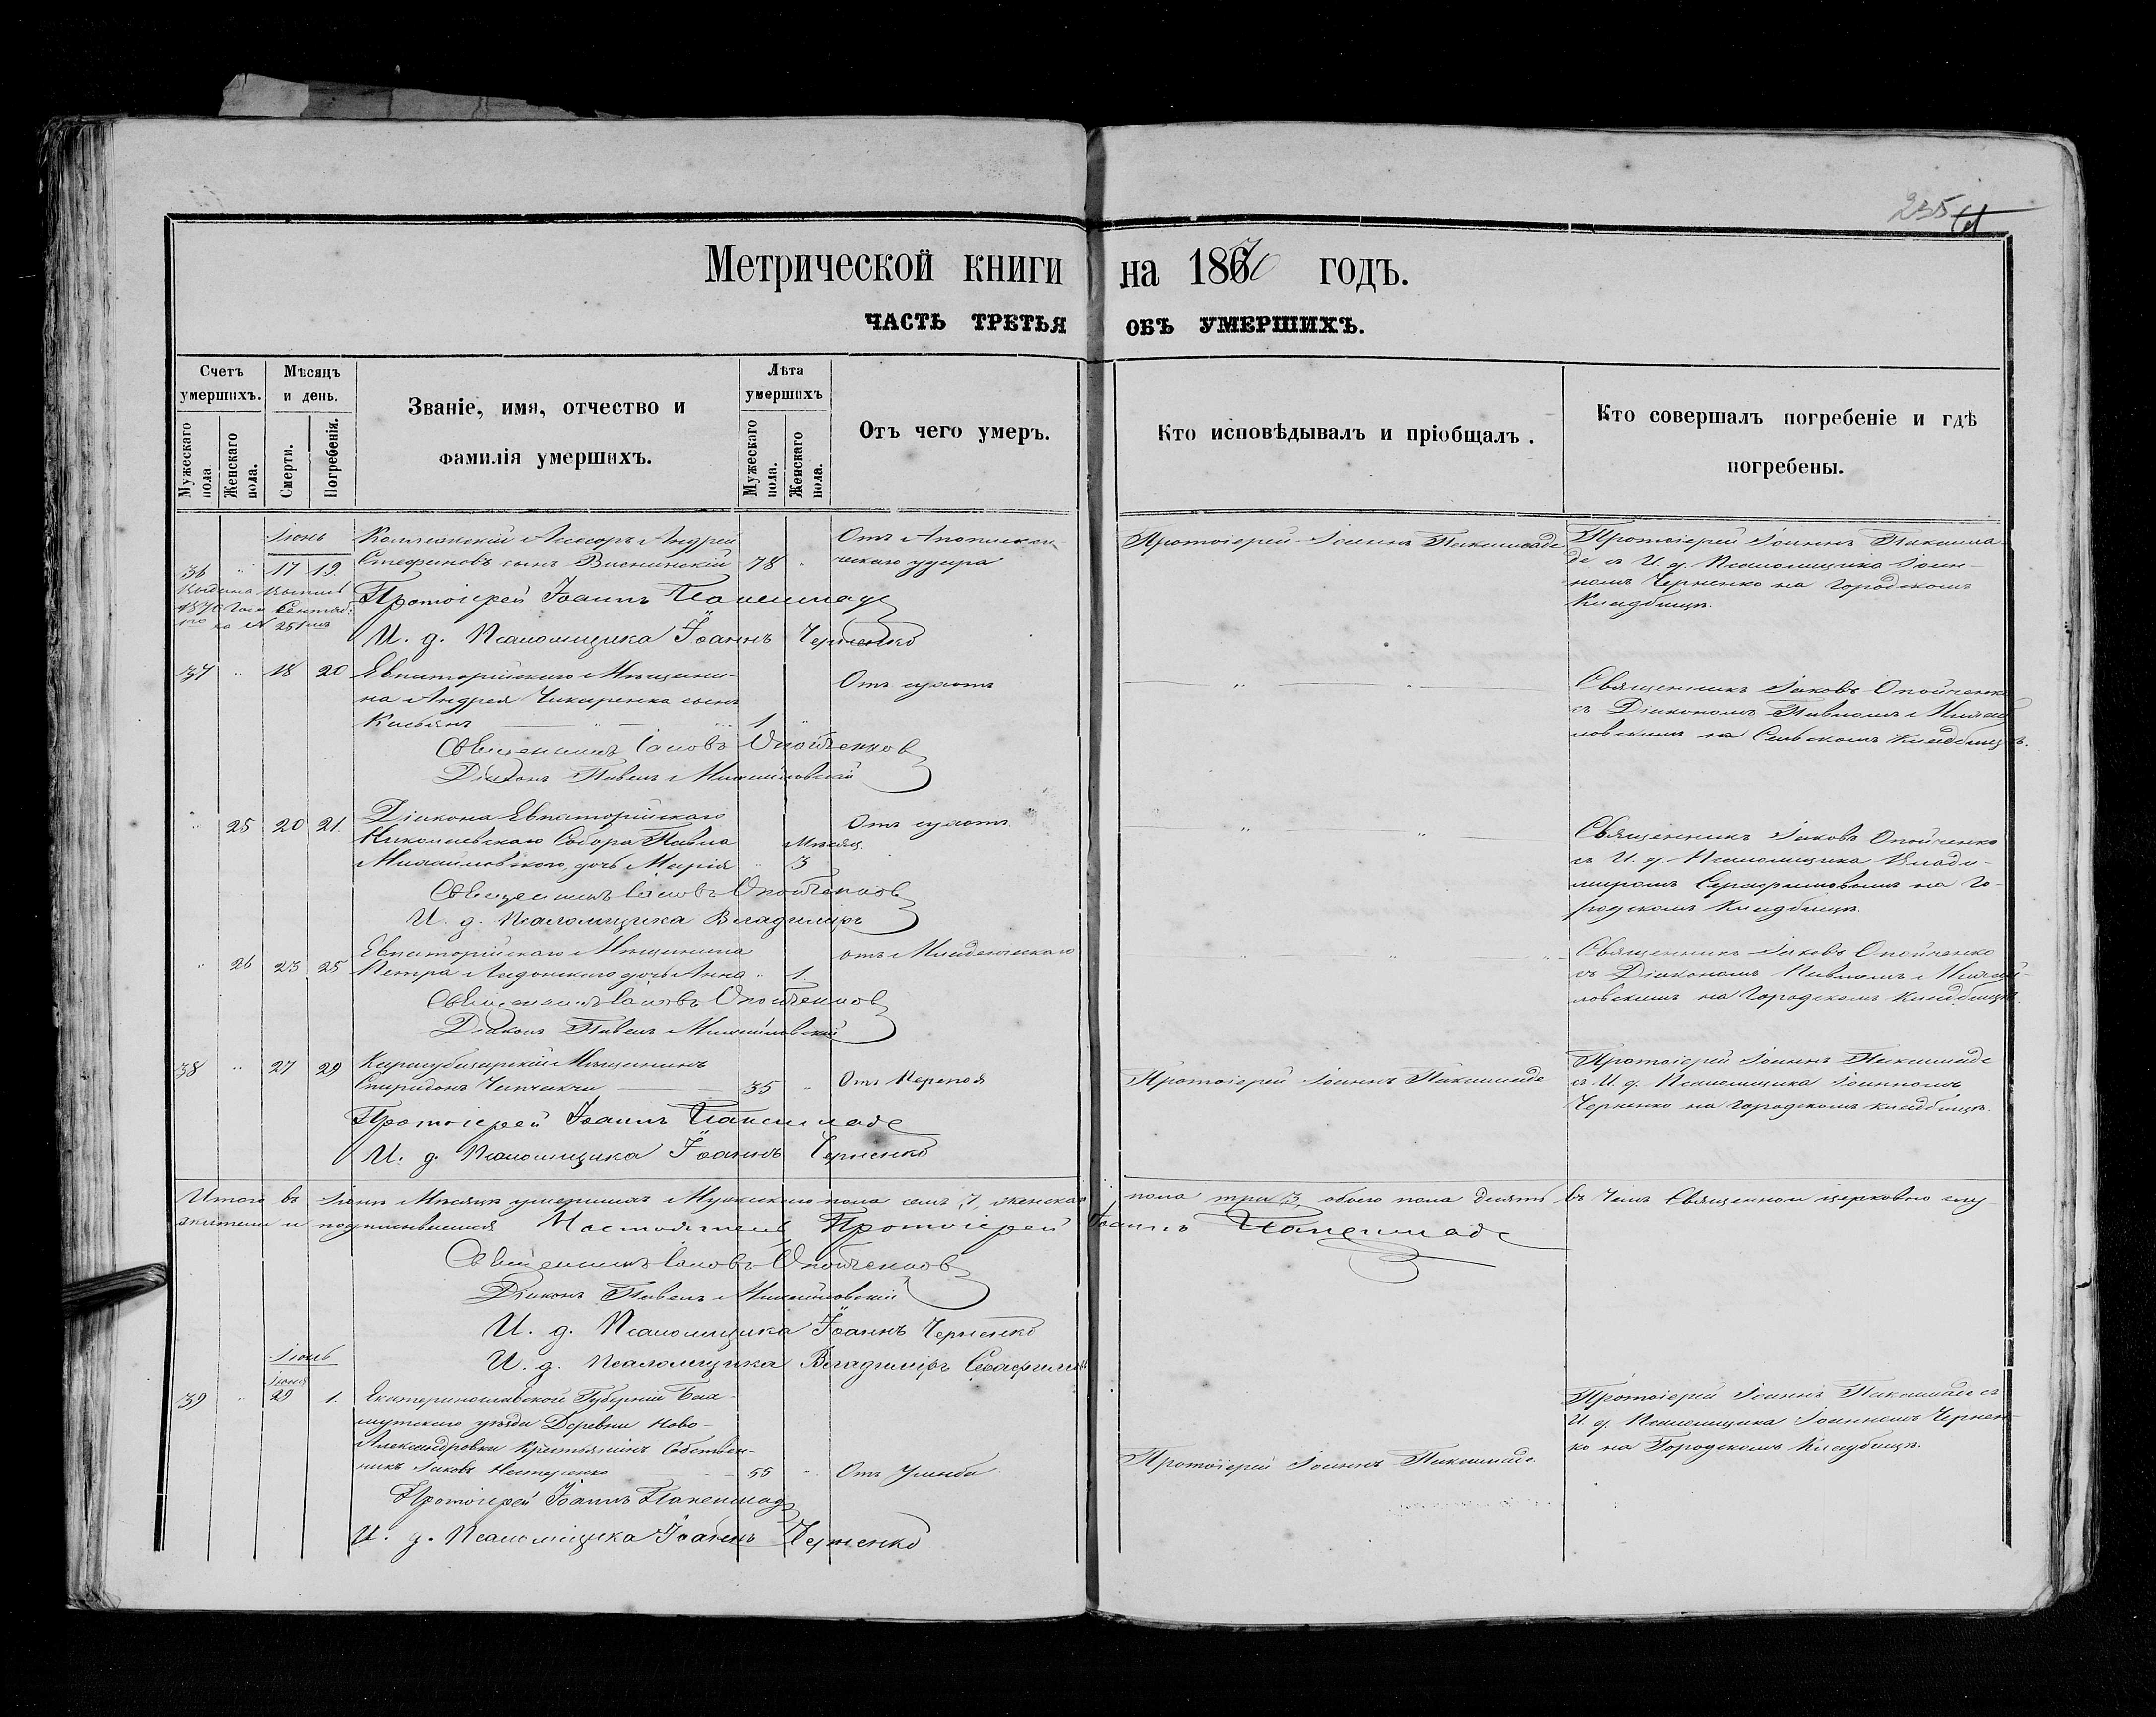 235
Метрической книги на 1870 годъ.
ЧАСТЬ ТРЕТЬЯ ОБЪ УМЕРШИХЪ.
Счетъ умершихъ.
Мѣсяцъ и день.
Званіе, имя, отчество и фамилія умершихъ.
Лѣта умершихъ
Отъ чего умеръ.
Кто исповѣдывалъ и пріобщалъ.
Кто совершалъ погребеніе и гдѣ погребены.
Мужескаго пола
Женскаго пола.
Смерти.
Погребенія.
Мужескаго пола.
Женскаго пола.
Іюнь
36 " 17 19.
Коллежскій Ассесоръ Андрей
Стефановъ сынъ 78 "
Отъ Апоплекси-
ческаго удара
Протоіерей Іоаннъ
Протоіерей Іоаннъ
съ И. д. Псаломщика Іоан-
номъ Черненко на Городскомъ
Кладбищѣ.
1870 Года Сентяб.
за N 251мъ
Протоіерей Іоаннъ
И. д. Псаломщика Іоаннъ Черненко
37 " 18 20
Евпаторійскаго Мѣщани-
на Андрея сынъ
1 "
Отъ сухотъ
Священникъ Іаковъ
съ Діакономъ Павломъ Михай-
ловскимъ на Сельскомъ Кладбищѣ.
Священникъ Іаковъ
Діаконъ Павелъ Михайловскій
" 25 20 21.
Діакона Евпаторійскаго
Николаевскаго Собора Павла
Михайловскаго дочь Марія
Мѣсяц.
" 3
Отъ сухотъ
Священникъ Іаковъ
съ И. д. Псаломщика Влади-
миромъ на Го-
родскомъ Кладбищѣ.
Священникъ Іаковъ
И. д. Псаломщика Владиміръ
" 26 23 25
Евпаторійскаго Мѣщанина
Петра дочь Анна " 1.
отъ Младенческаго
Священникъ Іаковъ
съ Діакономъ Павломъ Михай-
ловскимъ на Городскомъ Кладбищѣ.
Священникъ Іаковъ
Діаконъ Павелъ Михайловскій
38 " 27 29
Карасубазарскій Мѣщанинъ
Спиридонъ 35 "
Отъ Перепоя
Протоіерей Іоаннъ
Протоіерей Іоаннъ
съ И. д. Псаломщика Іоанномъ
Черненко на Городскомъ Кладбищѣ.
Протоіерей Іоаннъ
И. д. Псаломщика Іоаннъ Черненко
Итого въ Іюнѣ Мѣсяцѣ умершихъ Мужескаго пола семь 7, женскаго пола три 3, обоего пола десять въ чемъ Священно и церковно слу
жители и подписываемся Настоятель Протоіерей Іоаннъ
Священникъ Іаковъ
Діаконъ Павелъ Михайловскій
И. д. Псаломщика Іоаннъ Черненко
И. д. Псаломщика Владиміръ
Іюль
Іюня
39 " 29 1.
Екатеринославской Губерніи Бах-
мутскаго уѣзда Деревни Ново-
Александровки Крестьянинъ Собствен-
никъ Іаковъ Нестеренко 55 "
Протоіерей Іоаннъ
Протоіерей Іоаннъ съ
И. д. Псаломщика Іоанномъ Чернен-
ко на Городскомъ Кладбищѣ.
Протоіерей Іоаннъ
И. д. Псаломщика Іоаннъ Черненко